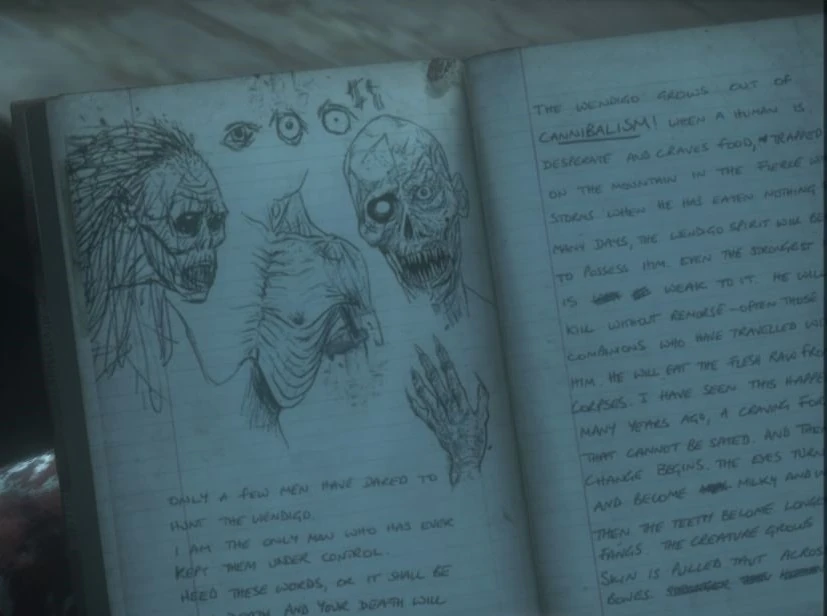 ONLY A FEW MEN HAVE DARED TO
HUNT THE WENDIGO.
I AM THE ONLY MAN WHO HAS EVER
KEPT THEM UNDER CONTROL.
HEED THESE WORDS, OR IT SHALL BE
DEATH AND YOUR DEATH WILL
THE WENDIGO GROWS OUT OF
CANNIBALISM! WHEN A HUMAN IS
DESPERATE AND CRAVES FOOD, & TRAPPED
ON THE MOUNTAIN IN THE FIERCE
STORMS. WHEN HE HAS EATEN NOTHING
MANY DAYS, THE WENDIGO SPIRIT WILL BE
TO POSSESS HIM. EVEN THE STRONGEST
IS WEAK TO IT. HE WILL
KILL WITHOUT REMORSE - OFTEN THOSE
COMPANIONS WHO HAVE TRAVELLED
HIM. HE WILL EAT THE FLESH RAW FRO
CORPSES. I HAVE SEEN THIS HAPPE
MANY YEARS AGO, A CRAVING FOR
THAT CANNOT BE SATED. AND THEN
CHANGE BEGINS. THE EYES TURN
AND BECOME MILKY AND
THEN THE TEETH BECOME LONGE
FANGS. THE CREATURE GROWS
SKIN IS PULLED TAUT ACROS
BONES.